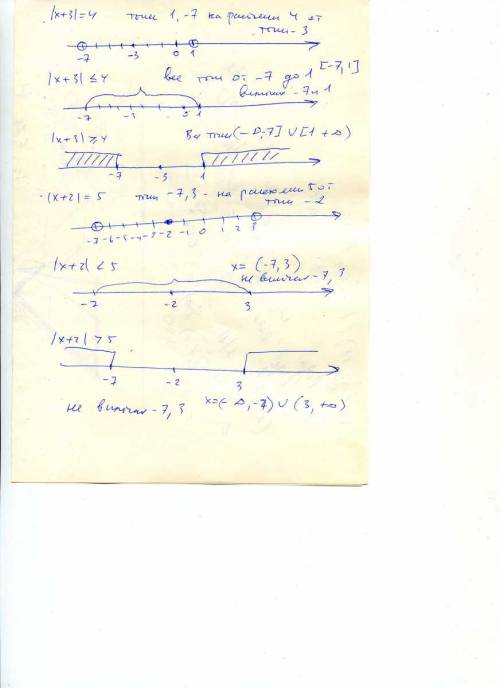 |x+3|=4 точки 1, -7 на расстоянии 4 от
точки -3
-7 -3 0 1
|x+3| ≤ 4 все точки от -7 до 1 [-7, 1]
включая -7 и 1
-7 -3 0 1
|x+3| ≥ 4 Все точки (-∞, 7] ∪ [1 +∞)
-7 -3 1
|x+2| = 5 точки -7, 3 - на расстоянии 5 от
точки -2
-7 -6 -5 -4 -3 -2 -1 0 1 2 3
|x+2| < 5 x = (-7, 3)
не включая -7, 3
-7 -2 3
|x+2| > 5
-7 -2 3
не включая -7, 3 x = (-∞, -7) ∪ (3, +∞)